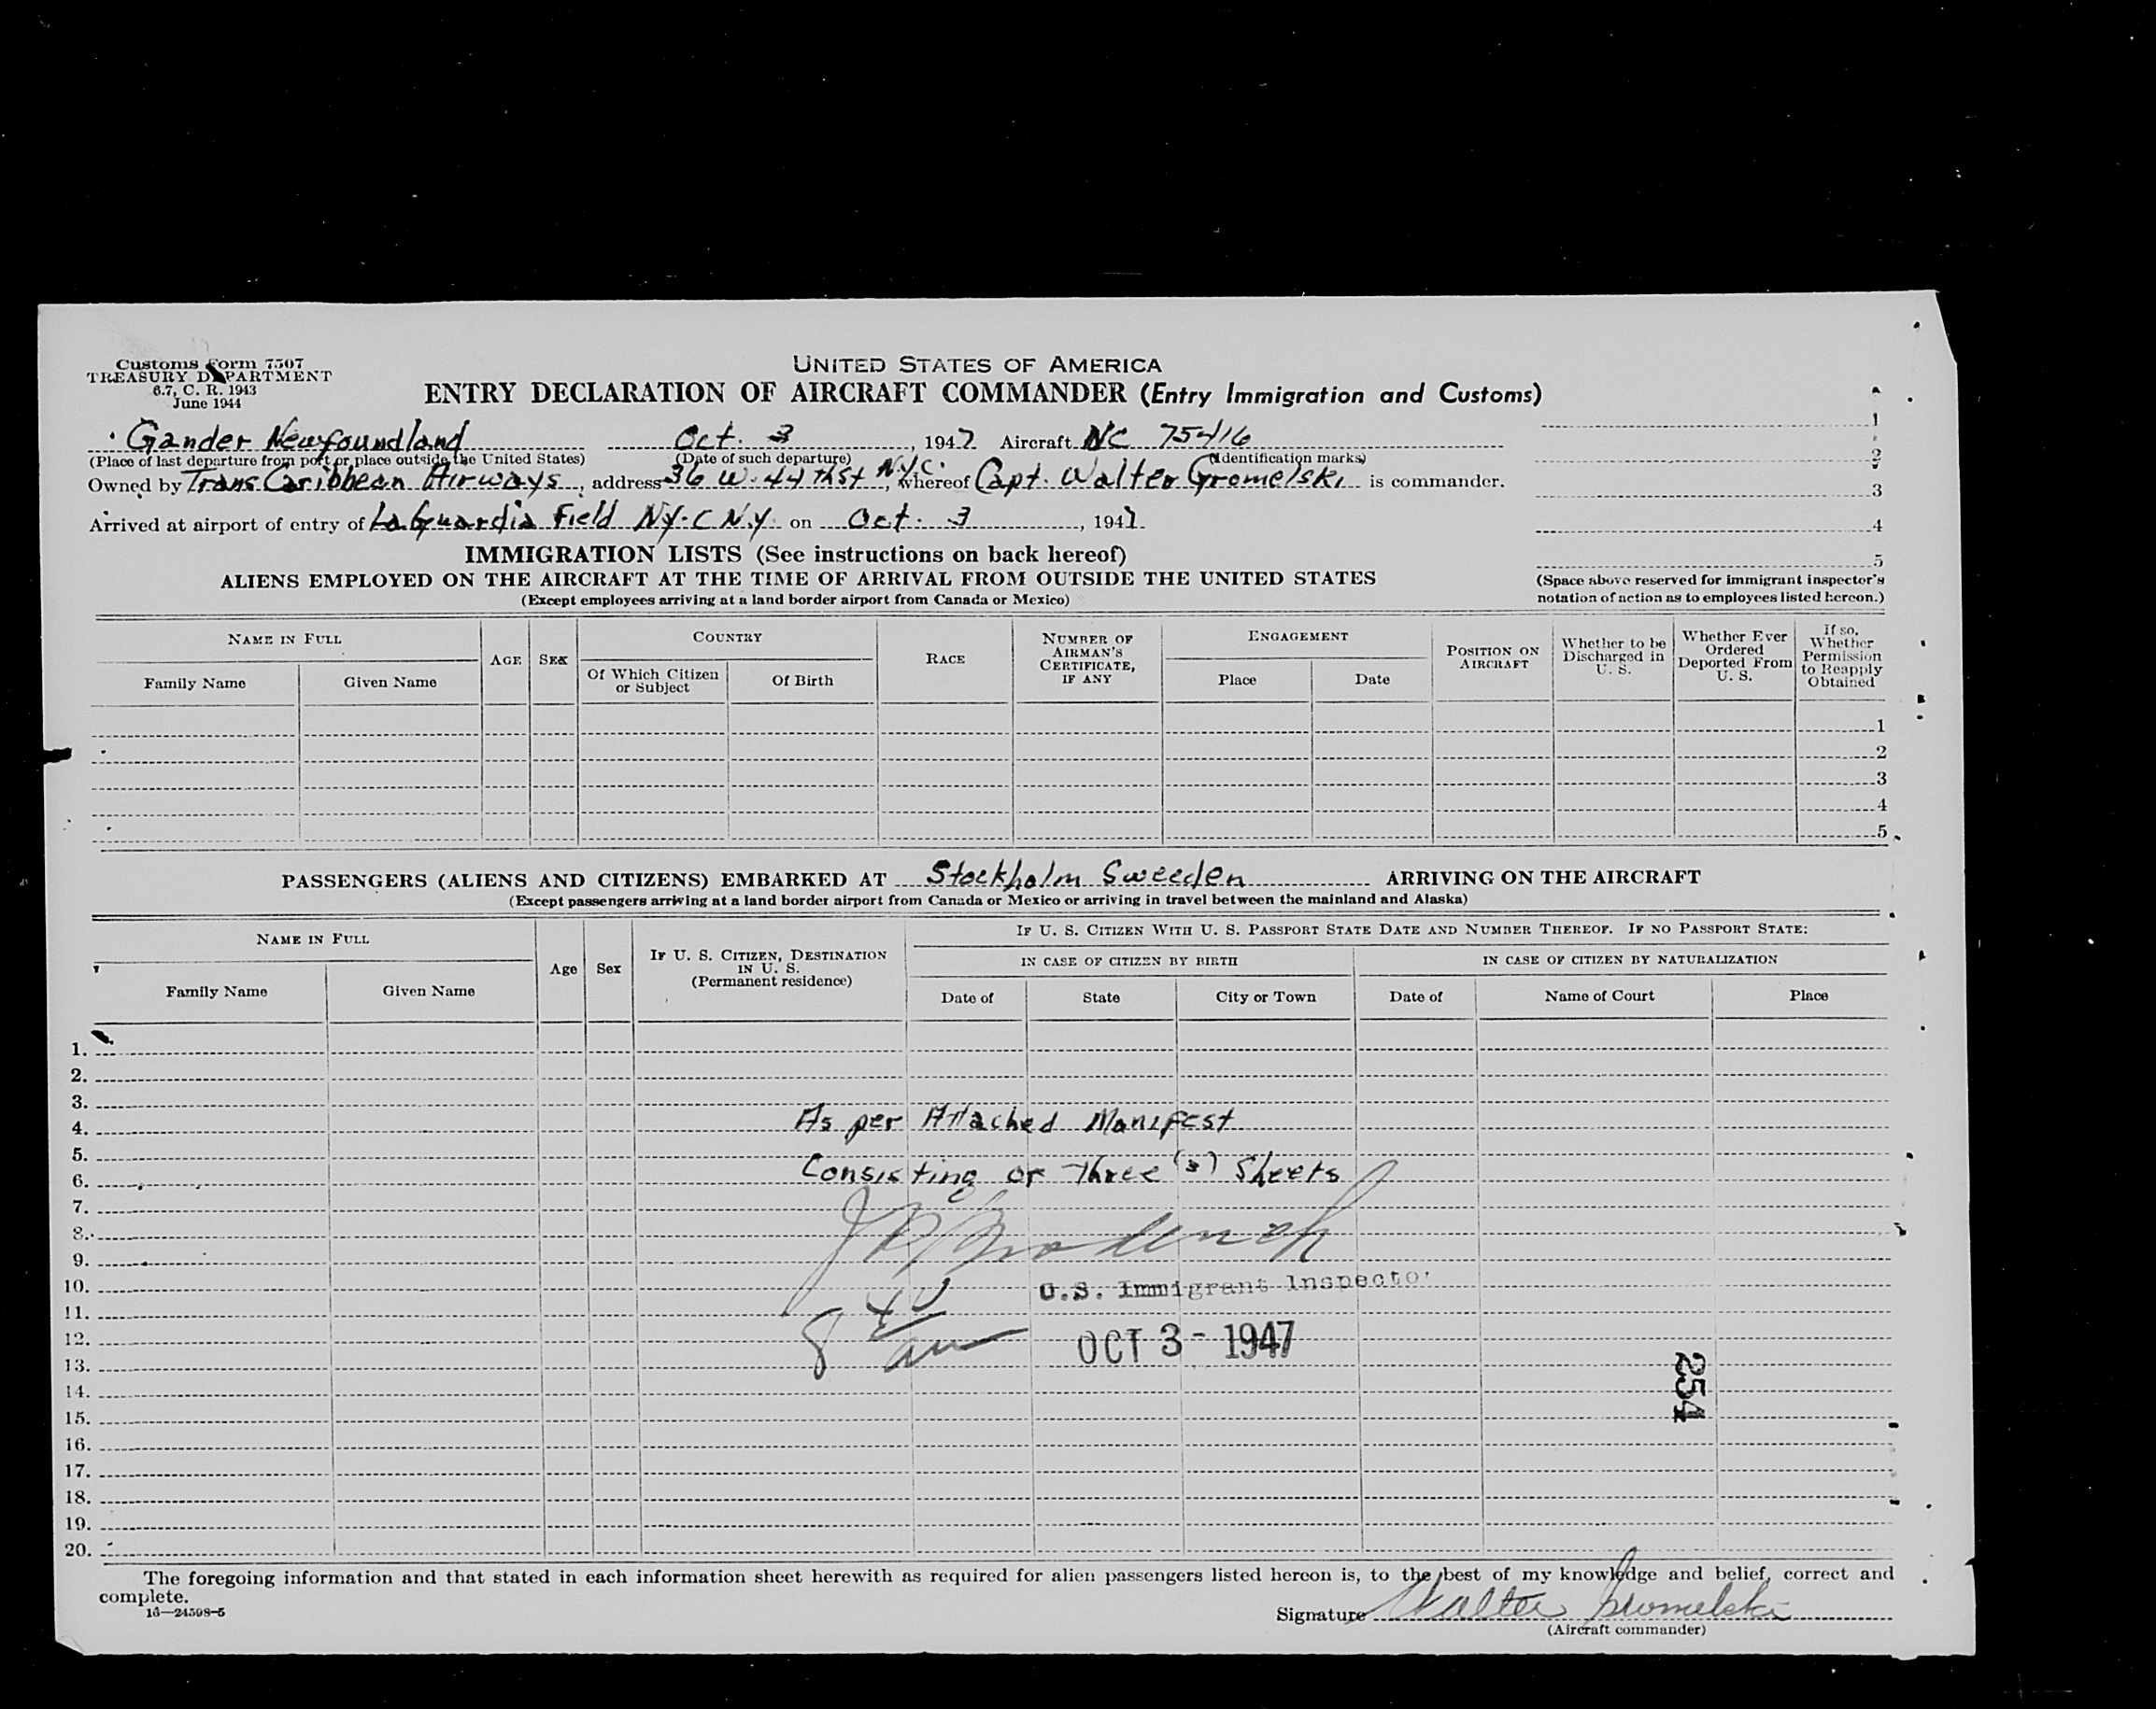 Customs Form 7507
TREASURY DEPARTMENT
6.7, C. R. 1943
June 1944
UNITED STATES OF AMERICA
ENTRY DECLARATION OF AIRCRAFT COMMANDER (Entry Immigration and Customs)
Gander Newfoundland Oct. 3, 1947 Aircraft NC 75416
(Place of last departure from port or place outside the United States) (Date of such departure) (Identification marks)
Owned by Trans Caribbean Airways, address 36 W. 44 th St N.Y.C., whereof Capt. Walter Gromelski is commander.
Arrived at airport of entry of La Guardia Field N.Y.C N.Y. on Oct. 3, 1947
1
2
3
4
5
(Space above reserved for immigrant inspector's
notation of action as to employees listed hereon.)
IMMIGRATION LISTS (See instructions on back hereof)
ALIENS EMPLOYED ON THE AIRCRAFT AT THE TIME OF ARRIVAL FROM OUTSIDE THE UNITED STATES
(Except employees arriving at a land border airport from Canada or Mexico)
NAME IN FULL
Family Name
Given Name
AGE
SEX
COUNTRY
Of Which Citizen
or Subject
Of Birth
RACE
NUMBER OF
AIRMAN'S
CERTIFICATE,
IF ANY
ENGAGEMENT
Place
Date
POSITION ON
AIRCRAFT
Whether to be
Discharged in
U. S.
Whether Ever
Ordered
Deported From
U. S.
If so,
Whether
Permission
to Reapply
Obtained
1
2
3
4
5
PASSENGERS (ALIENS AND CITIZENS) EMBARKED AT Stockholm Sweeden ARRIVING ON THE AIRCRAFT
(Except passengers arriving at a land border airport from Canada or Mexico or arriving in travel between the mainland and Alaska)
NAME IN FULL
Family Name
Given Name
Age
Sex
IF U. S. CITIZEN, DESTINATION
IN U. S.
(Permanent residence)
IF U. S. CITIZEN WITH U. S. PASSPORT STATE DATE AND NUMBER THEREOF. IF NO PASSPORT STATE:
IN CASE OF CITIZEN BY BIRTH
Date of
State
City or Town
IN CASE OF CITIZEN BY NATURALIZATION
Date of
Name of Court
Place
1.
2.
3.
4. As per Attached Manifest
5.
6. Consisting of Three (3) Sheets
7.
8.
9.
10. U.S. Immigrant Inspector
11.
12. OCT 3 - 1947
13.
14. 254
15.
16.
17.
18.
19.
20.
The foregoing information and that stated in each information sheet herewith as required for alien passengers listed hereon is, to the best of my knowledge and belief, correct and
complete.
16—24598-5
Signature Walter Gromelski
(Aircraft commander)